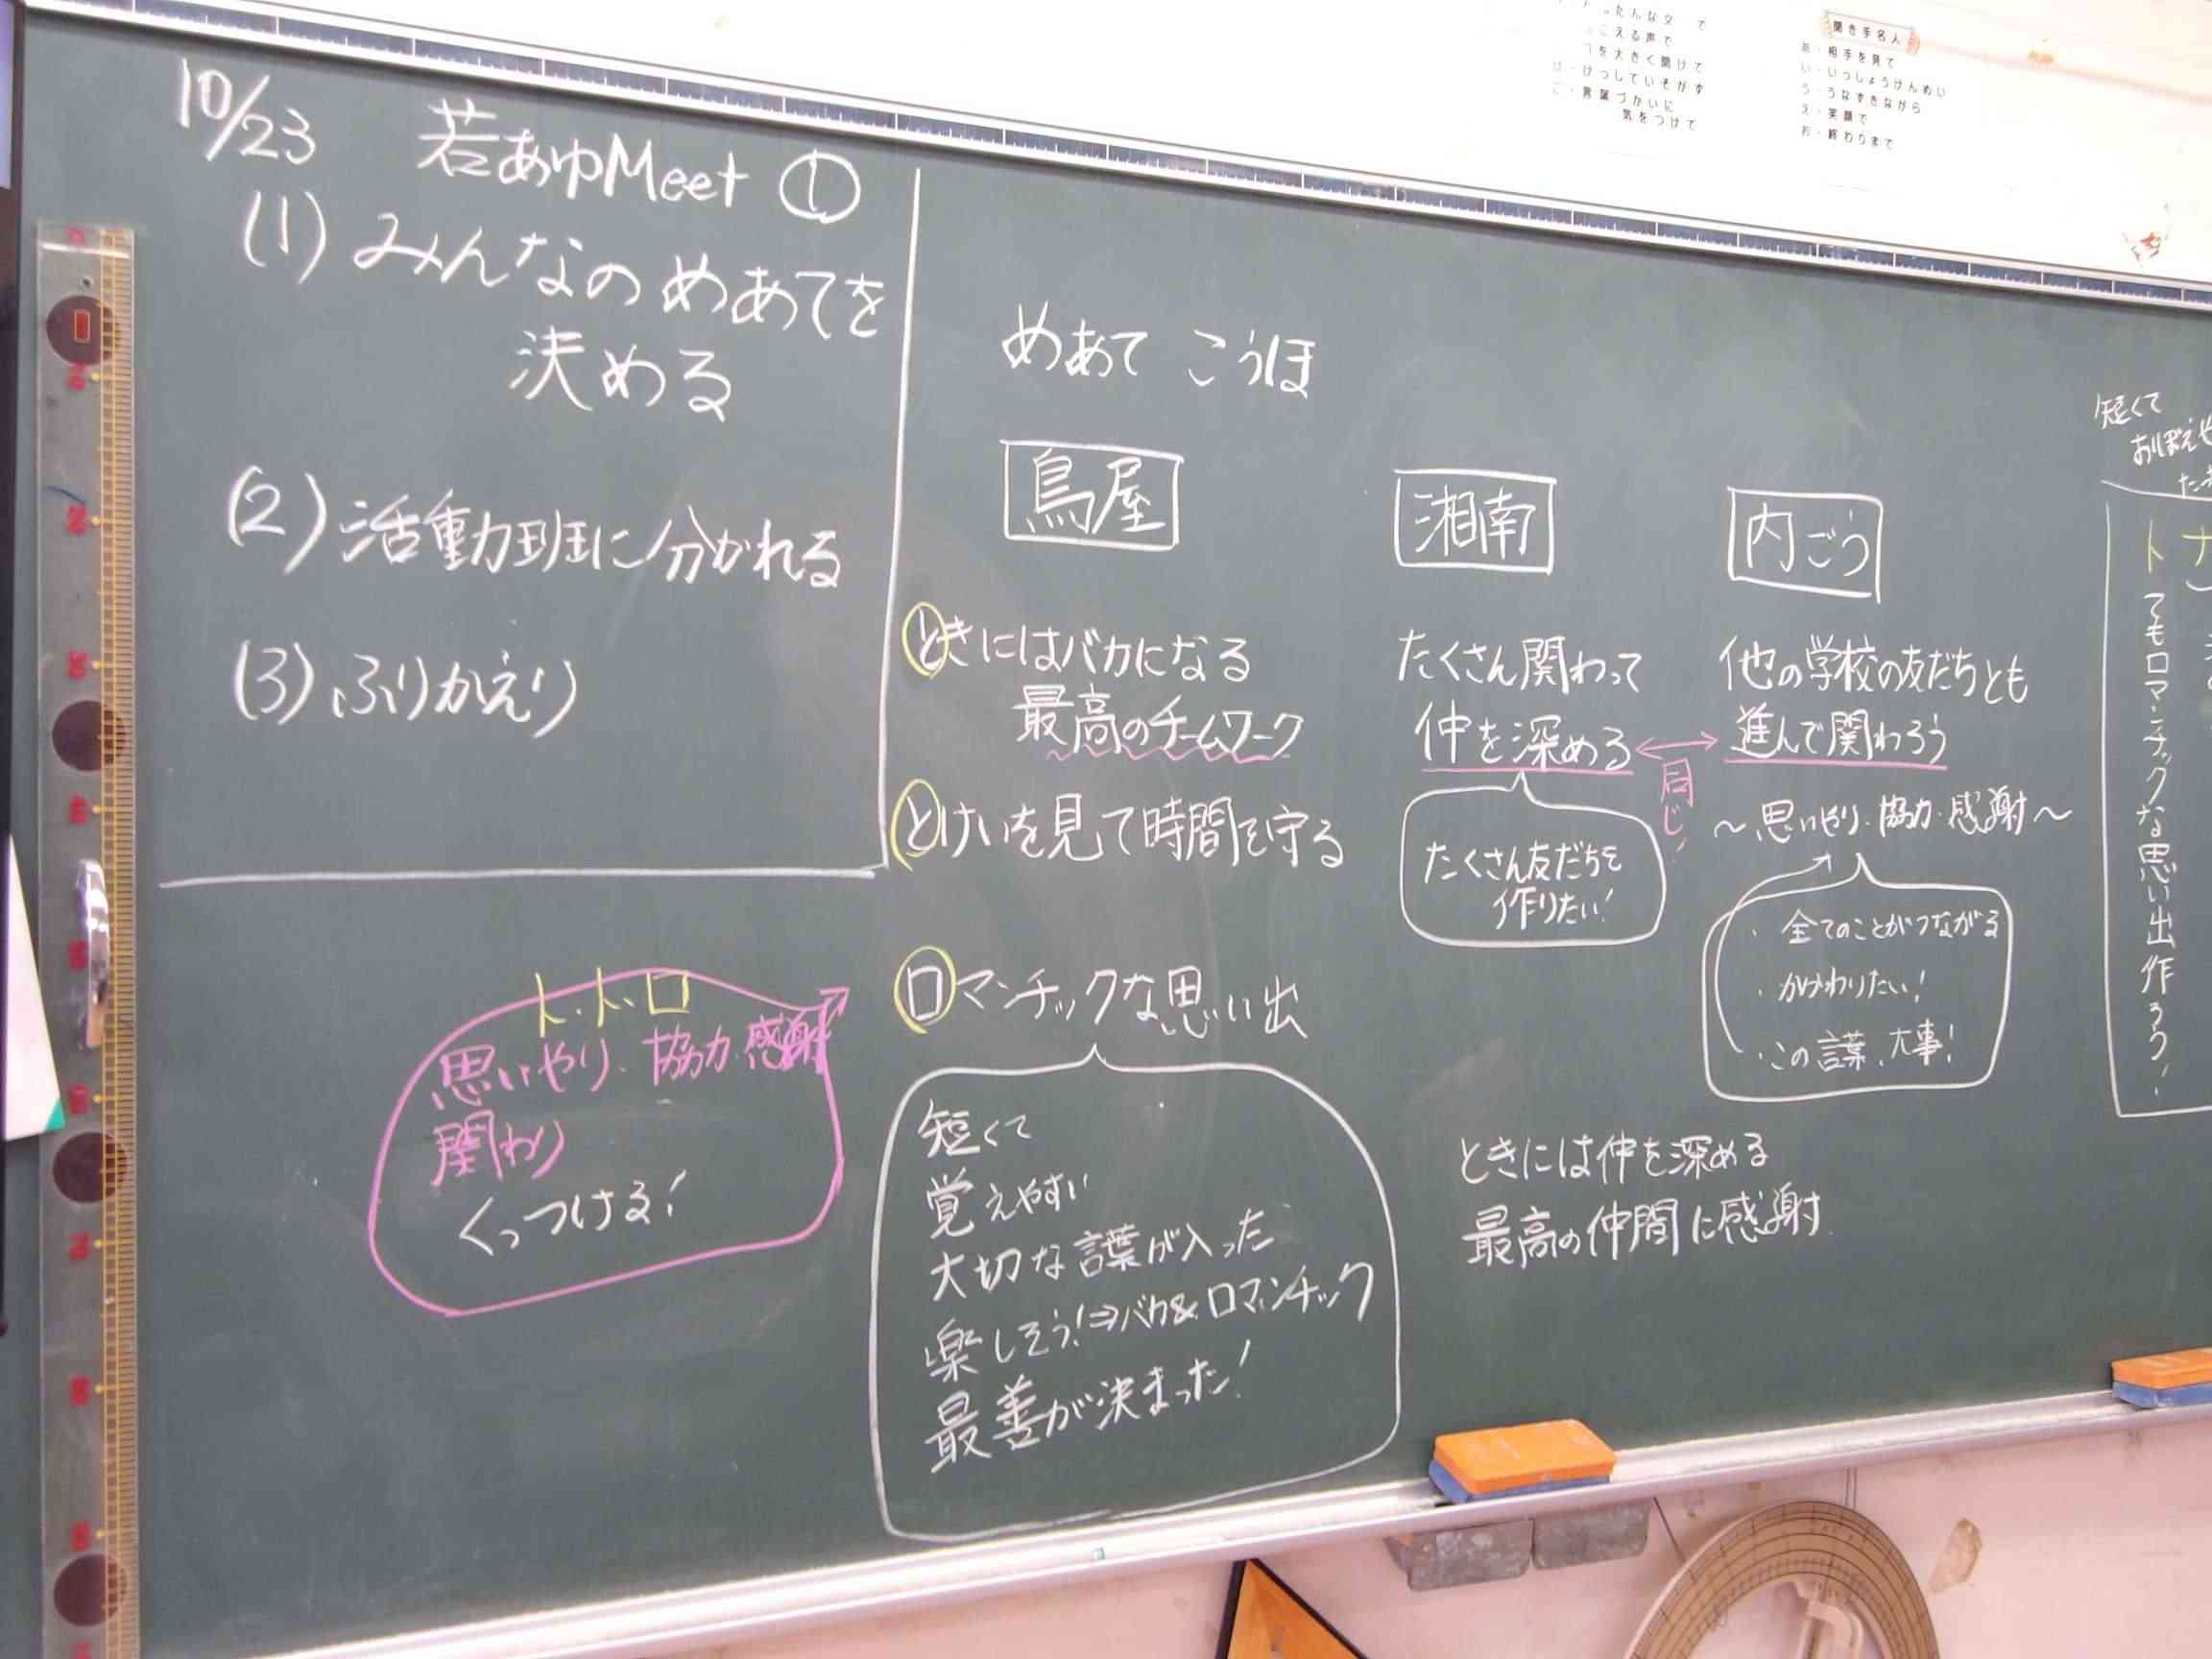 10/23 若あゆMeet ①
(1) みんなのめあてを
決める
(2) 活動班に分かれる
(3) ふりかえり
ト・ト・ロ
思いやり・協力・感謝
関わり
くっつける!
めあて こうほ
鳥屋
ときにはバカになる
最高のチームワーク
とけいを見て時間を守る
ロマンチックな思い出
短くて
覚えやすい
大切な言葉が入った
楽しそう!⇒バカ&ロマンチック
最善が決まった!
湘南
たくさん関わって
仲を深める
たくさん友だちを
作りたい!
同じ!
内ごう
他の学校の友だちとも
進んで関わろう
〜思いやり・協力・感謝〜
・全てのことがつながる
・かかわりたい!
・この言葉、大事!
ときには仲を深める
最高の仲間に感謝
短くて
おぼえや
トてもロマンチックな思い出作ろう!
こえる声で
を大きく開けて
け・けっしていそがず
ご・言葉づかいに
気をつけて
聞き手名人
あ・相手を見て
い・いっしょうけんめい
う・うなずきながら
え・笑顔で
お・終わりまで